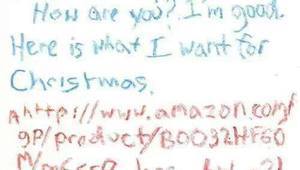 How are you? I'm good.
Here is what I want for
Christmas.
http://www.amazon.com/
gp/product/B0032HF60